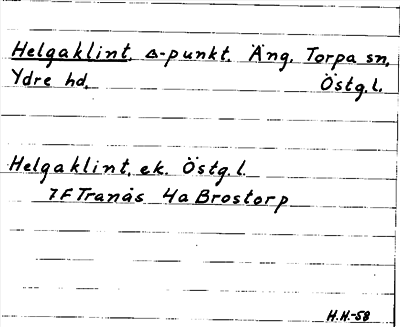 Helgaklint. ∆-punkt. Äng. Torpa sn,
Ydre hd. Östg.l.
Helgaklint, ek. Östg.l.
7F Tranås 4a Brostorp
H.H.-58